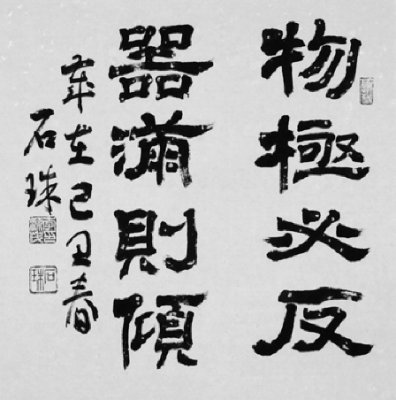 物極必反
器滿則傾
年在己丑春
石珠